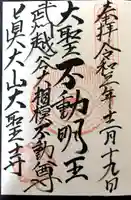 奉拝 令和三年十二月十九日
大聖不動明王
武州越谷大相模不動尊
真大山大聖寺